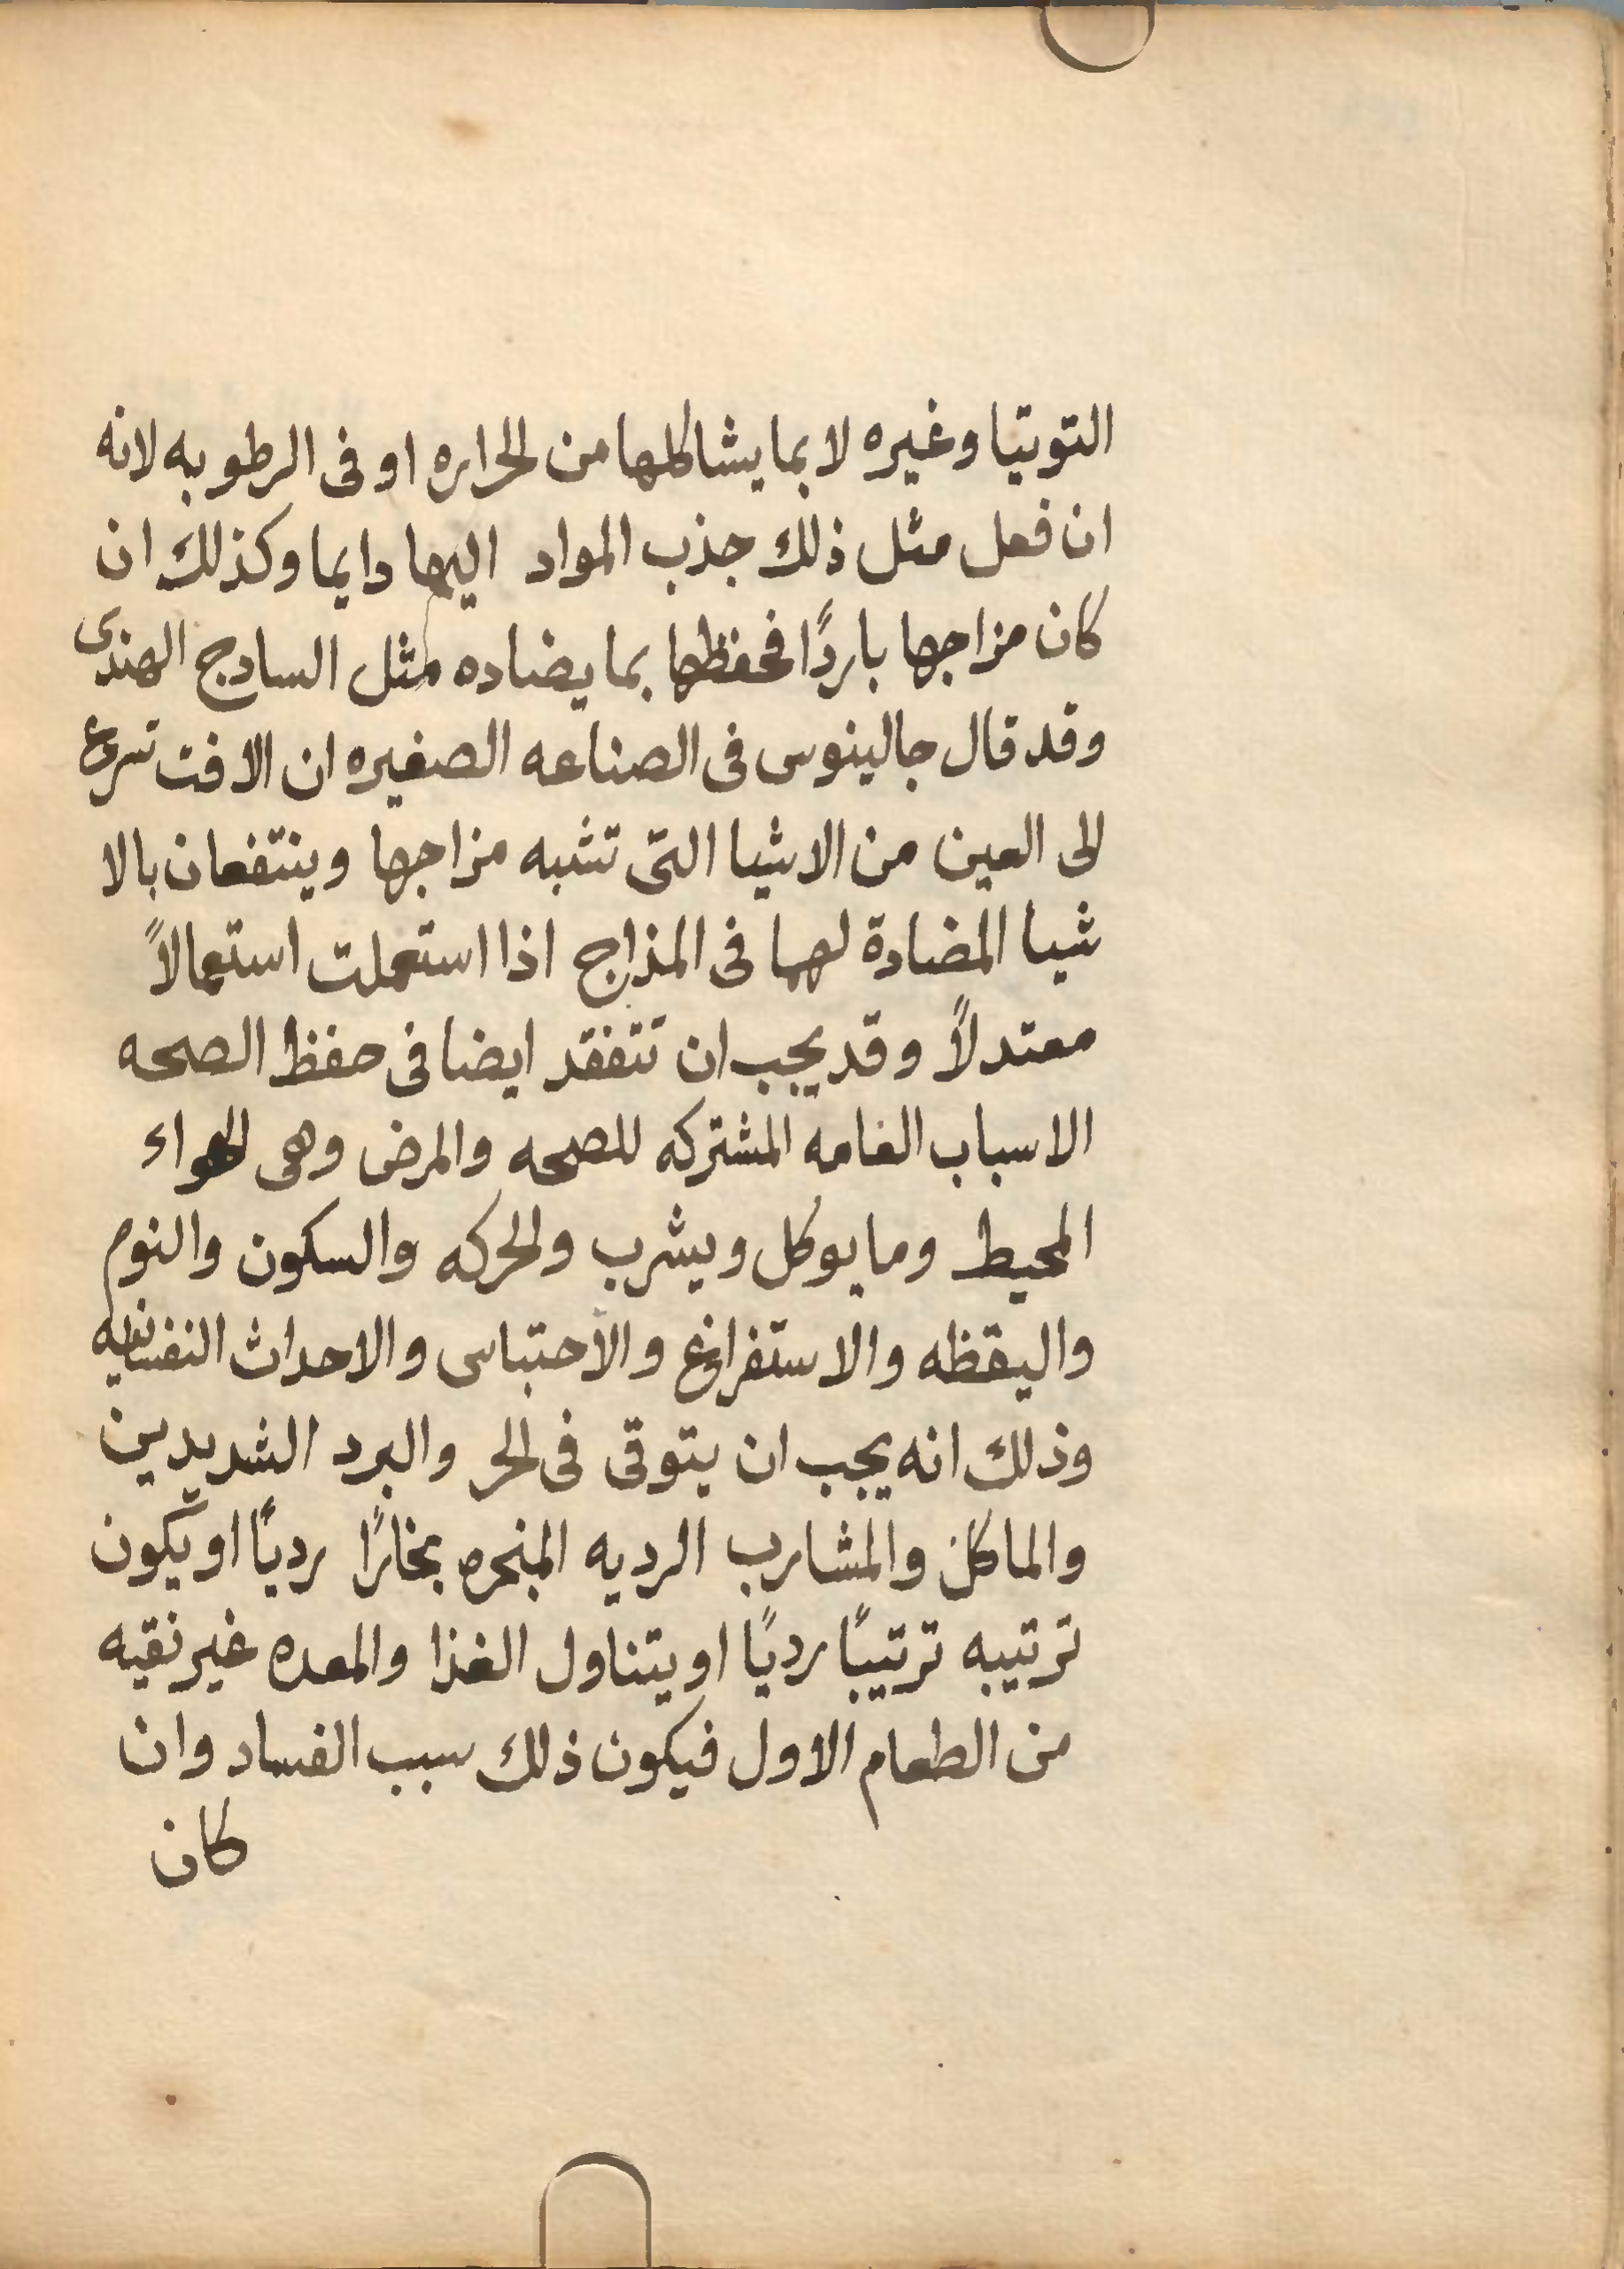 التوتيا وغيره لا بما يشاكلها من الحراره او فى الرطوبه لانه
ان فعل مثل ذلك جذب المواد اليها دايما وكذلك ان
كان مزاجها باردًا فحفظها بما يضاده مثل السادج الهندى
وقد قال جالينوس فى الصناعه الصغيره ان الافت تسرع
الى العين من الاشيا التى تشبه مزاجها وينتفعان بالا
شيا المضادة لهما فى المذاج اذا استعملت استعمالاً
معتدلاً وقد يجب ان تتفقد ايضا فى حفظ الصحه
الاسباب العامه المشتركه للصحه والمرض وهى الهواء
المحيط وما يوكل ويشرب والحركه والسكون والنوم
واليقظه والاستفراغ والاحتباس والاحداث النفسانيه
وذلك انه يجب ان يتوقى فى الحر والبرد الشديدين
والماكل والمشارب الرديه المبخره بخارًا رديًا او يكون
ترتيبه ترتيبًا رديًا او يتناول الغذا والمعده غير نقيه
من الطعام الاول فيكون ذلك سبب الفساد وان
كان